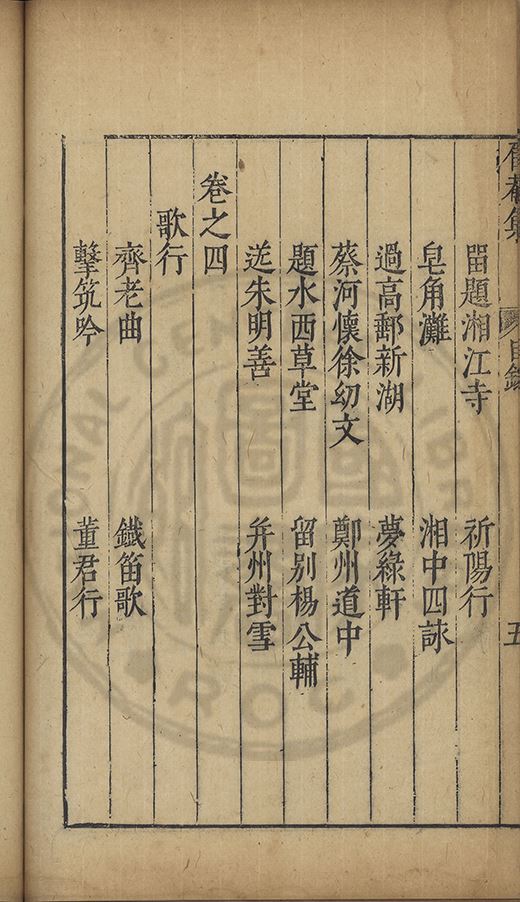 眉菴集 目錄 五
畱題湘江寺 祈陽行
皂角灘 湘中四詠
過高郵新湖 夢綠軒
蔡河懷徐幼文 鄭州道中
題水西草堂 留別楊公輔
送朱明善 并州對雪
卷之四
歌行
齊老曲 鐵笛歌
擊筑吟 董君行